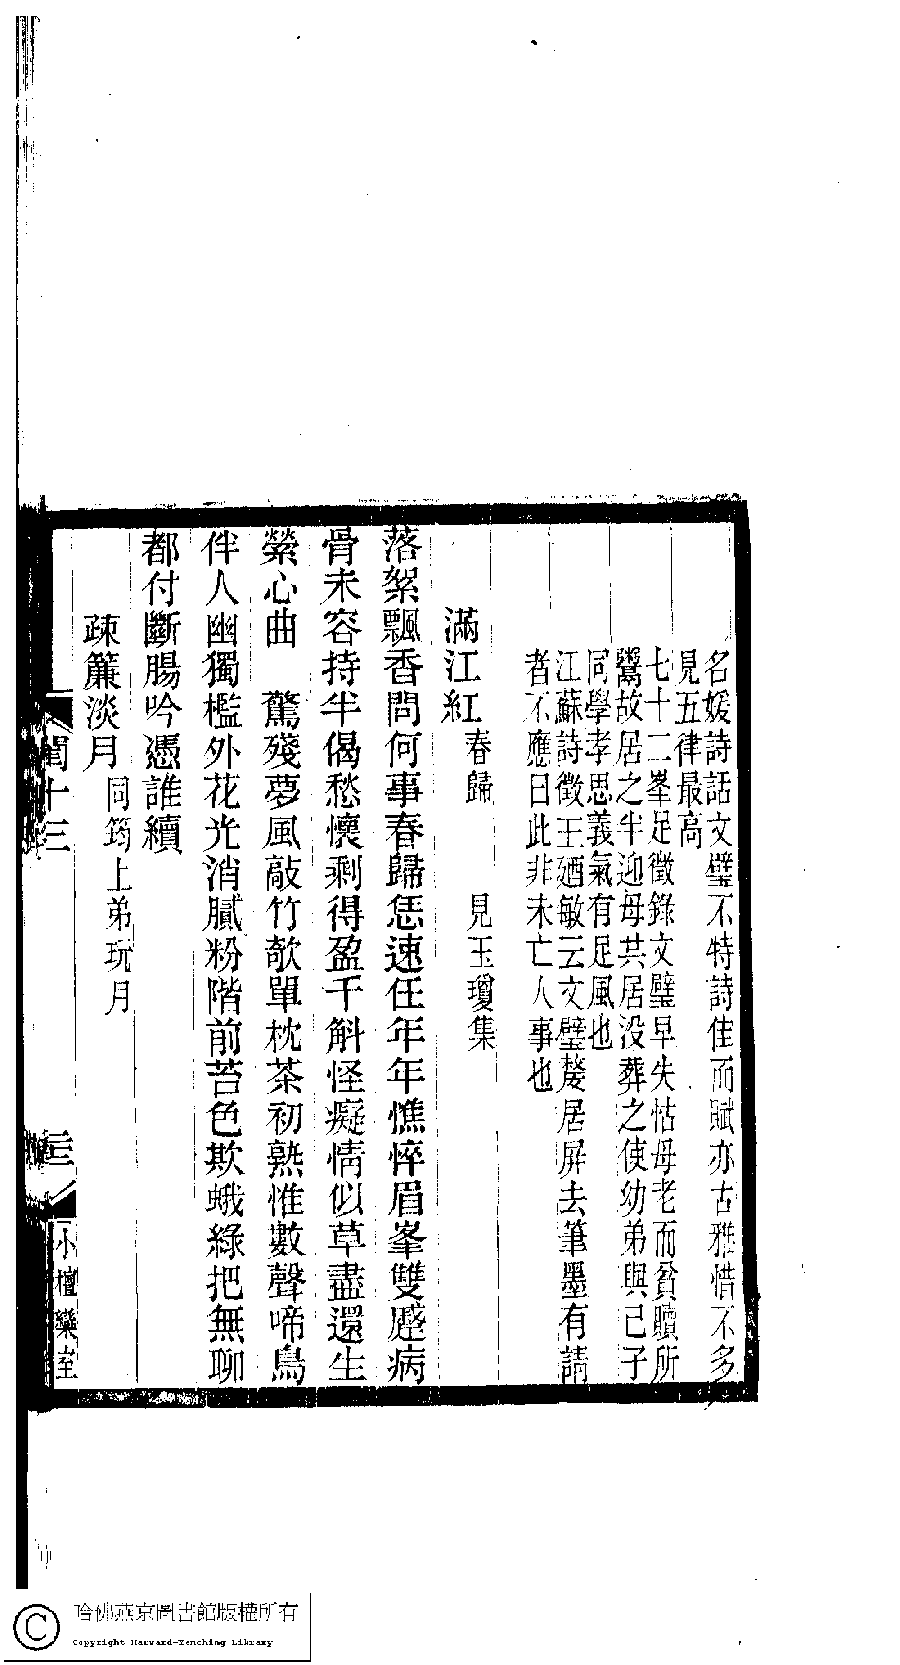 名媛詩話文璧不特詩佳而賦亦古雅惜不多
見五律最高
七十二峯足徵錄文璧早失怙母老而貧贖所
鬻故居之半迎母共居没葬之使幼弟與已子
同學孝思義氣有足風也
江蘇詩徵王廼敏云文璧嫠居屏去筆墨有請
者不應曰此非未亡人事也
滿江紅 春歸 見玉瓊集
落絮飄香問何事春歸恁速任年年憔悴眉峯雙蹙病
骨未容持半偈愁懷剩得盈千斛怪癡情似草盡還生
縈心曲 驚殘夢風敲竹欹單枕茶初熟惟數聲啼鳥
伴人幽獨檻外花光消膩粉階前苔色欺蛾綠把無聊
都付斷腸吟憑誰續
疎簾淡月 同筠上弟玩月
閨十三
三
小檀欒室
哈佛燕京圖書館版權所有
Copyright Harvard-Yenching Library